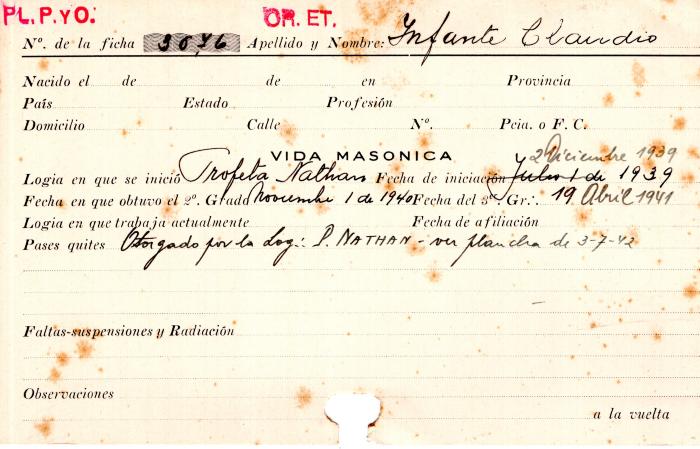 PL.P.yO. OR. ET.
Nº. de la ficha 3076 Apellido y Nombre: Infante Claudio
Nacido el de de en Provincia
País Estado Profesión
Domicilio Calle Nº. Pcia. o F. C.
VIDA MASONICA 2 Diciembre 1939
Logia en que se inició Profeta Nathan Fecha de iniciación Julio 1 de 1939
Fecha en que obtuvo el 2º. Grado Noviembre 1 de 1940 Fecha del 3er Gr∴. 19 Abril 1941
Logia en que trabaja actualmente Fecha de afiliación
Pases quites Otorgado por la Log∴ P. NATHAN - ver plancha de 3-7-42
Faltas-suspensiones y Radiación
Observaciones
a la vuelta